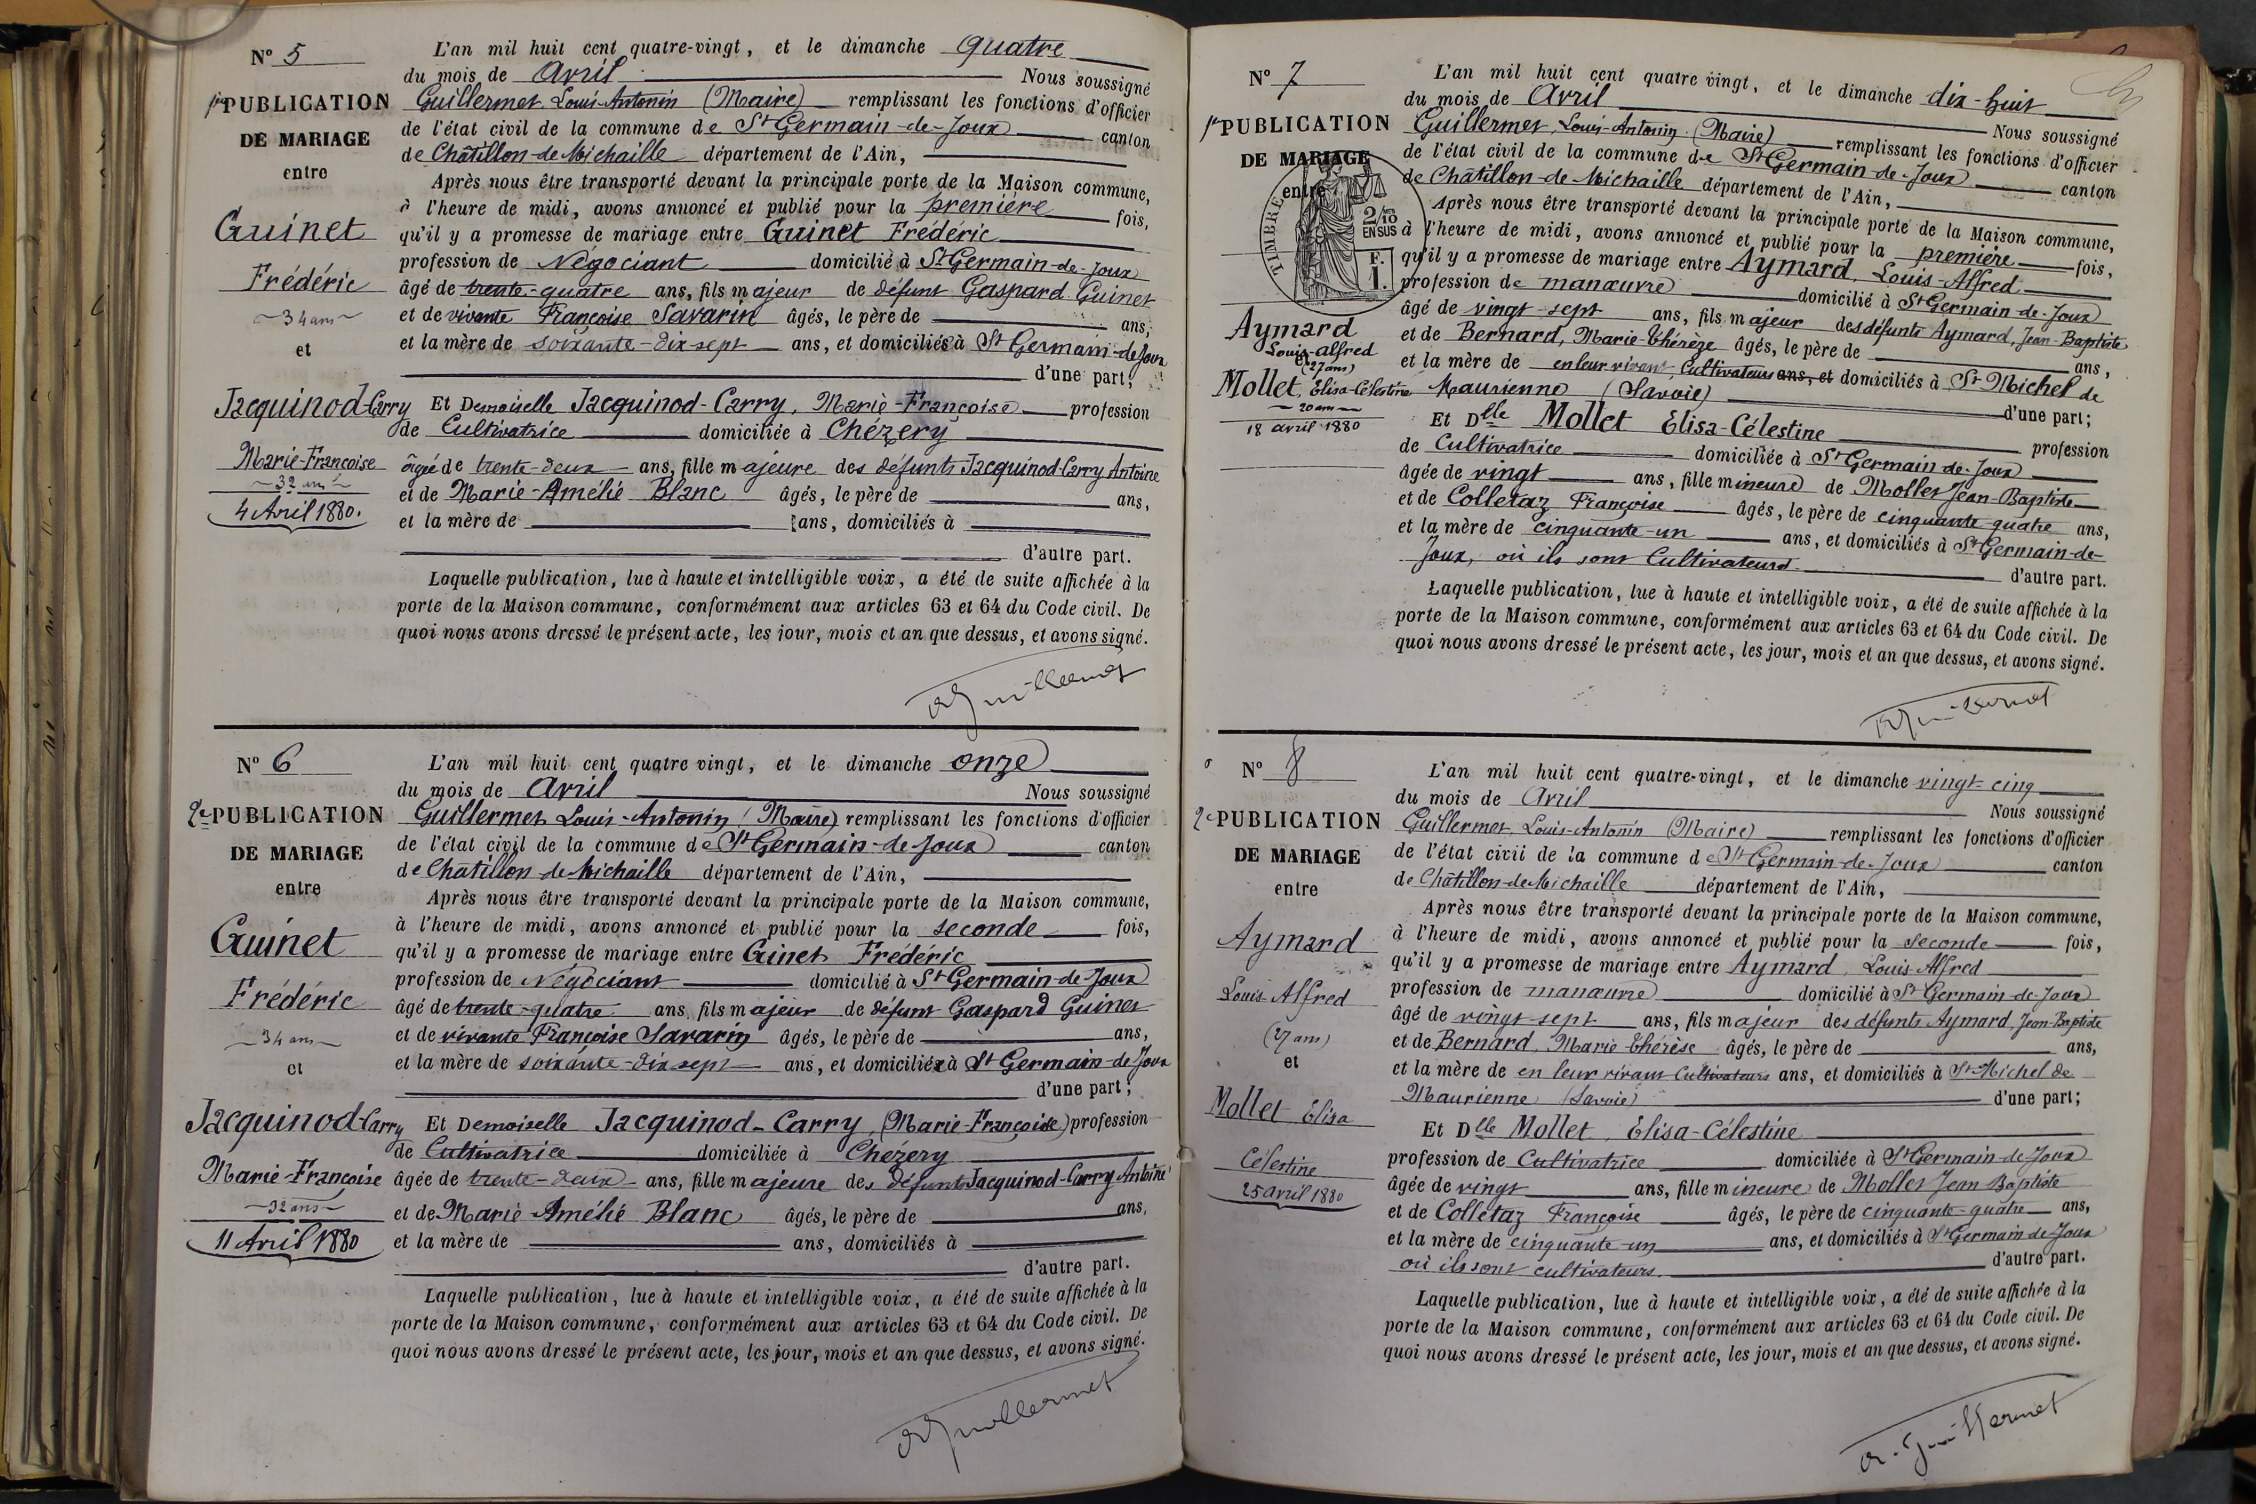 N° 5
1re PUBLICATION
DE MARIAGE
entre
Guinet
Frédéric
34 ans
et
Jacquinod-Carry
Marie-Françoise
32 ans
4 Avril 1880.
L'an mil huit cent quatre-vingt, et le dimanche quatre
du mois de Avril Nous soussigné
Guillermet Louis-Antonin (Maire) remplissant les fonctions d'officier
de l'état civil de la commune de St Germain-de-Joux canton
de Châtillon-de-Michaille département de l'Ain,
Après nous être transporté devant la principale porte de la Maison commune,
à l'heure de midi, avons annoncé et publié pour la première fois,
qu'il y a promesse de mariage entre Guinet Frédéric
profession de Négociant domicilié à St Germain-de-Joux
âgé de trente-quatre ans, fils majeur de défunt Gaspard Guinet
et de vivante Françoise Savarin âgés, le père de ans,
et la mère de soixante-dix-sept ans, et domiciliés à St Germain-de-Joux
d'une part;
Et Demoiselle Jacquinod-Carry, Marie-Françoise profession
de Cultivatrice domiciliée à Chézery
âgée de trente-deux ans, fille majeure des défunts Jacquinod-Carry Antoine
et de Marie-Amélie Blanc âgés, le père de ans,
et la mère de ans, domiciliés à
d'autre part.
Laquelle publication, lue à haute et intelligible voix, a été de suite affichée à la
porte de la Maison commune, conformément aux articles 63 et 64 du Code civil. De
quoi nous avons dressé le présent acte, les jour, mois et an que dessus, et avons signé.
Guillermet
N° 6
2e PUBLICATION
DE MARIAGE
entre
Guinet
Frédéric
34 ans
et
Jacquinod-Carry
Marie-Françoise
32 ans
11 Avril 1880
L'an mil huit cent quatre vingt, et le dimanche onze
du mois de Avril Nous soussigné
Guillermet Louis-Antonin (Maire) remplissant les fonctions d'officier
de l'état civil de la commune de St Germain-de-Joux canton
de Châtillon-de-Michaille département de l'Ain,
Après nous être transporté devant la principale porte de la Maison commune,
à l'heure de midi, avons annoncé et publié pour la seconde fois,
qu'il y a promesse de mariage entre Guinet Frédéric
profession de Négociant domicilié à St Germain-de-Joux
âgé de trente-quatre ans, fils majeur de défunt Gaspard Guinet
et de vivante Françoise Savarin âgés, le père de ans,
et la mère de soixante-dix sept ans, et domiciliés à St Germain-de-Joux
d'une part;
Et Demoiselle Jacquinod-Carry, (Marie-Françoise) profession
de Cultivatrice domiciliée à Chézery
âgée de trente-deux ans, fille majeure des défunts Jacquinod-Carry Antoine
et de Marie Amélie Blanc âgés, le père de ans,
et la mère de ans, domiciliés à
d'autre part.
Laquelle publication, lue à haute et intelligible voix, a été de suite affichée à la
porte de la Maison commune, conformément aux articles 63 et 64 du Code civil. De
quoi nous avons dressé le présent acte, les jour, mois et an que dessus, et avons signé.
Guillermet
N° 7
1re PUBLICATION
DE MARIAGE
entre
TIMBRE
2/10
EN SUS
F.
1.
Aymard
Louis-Alfred
et
(27 ans)
Mollet, Elisa-Célestine
20 ans
18 avril 1880
L'an mil huit cent quatre vingt, et le dimanche dix-huit
du mois de Avril Nous soussigné
Guillermet, Louis-Antonin (Maire) remplissant les fonctions d'officier
de l'état civil de la commune de St Germain-de-Joux canton
de Châtillon-de-Michaille département de l'Ain,
Après nous être transporté devant la principale porte de la Maison commune,
à l'heure de midi, avons annoncé et publié pour la première fois,
qu'il y a promesse de mariage entre Aymard, Louis-Alfred
profession de manœuvre domicilié à St Germain-de-Joux
âgé de vingt-sept ans, fils majeur des défunts Aymard, Jean-Baptiste
et de Bernard, Marie-Thérèze âgés, le père de ans,
et la mère de en leur vivant, Cultivateurs ans, et domiciliés à St Michel de
Maurienne (Savoie) d'une part;
Et Dlle Mollet Elisa-Célestine profession
de Cultivatrice domiciliée à St Germain-de-Joux
âgée de vingt ans, fille mineure de Mollet Jean-Baptiste
et de Colletaz Françoise âgés, le père de cinquante-quatre ans,
et la mère de cinquante-un ans, et domiciliés à St Germain-de-
Joux, où ils sont Cultivateurs. d'autre part.
Laquelle publication, lue à haute et intelligible voix, a été de suite affichée à la
porte de la Maison commune, conformément aux articles 63 et 64 du Code civil. De
quoi nous avons dressé le présent acte, les jour, mois et an que dessus, et avons signé.
Guillermet
N° 8
2e PUBLICATION
DE MARIAGE
entre
Aymard
Louis-Alfred
(27 ans)
et
Mollet Elisa
Célestine
25 avril 1880
L'an mil huit cent quatre-vingt, et le dimanche vingt-cinq
du mois de Avril Nous soussigné
Guillermet, Louis-Antonin (Maire) remplissant les fonctions d'officier
de l'état civil de la commune de St Germain-de-Joux canton
de Châtillon-de-Michaille département de l'Ain,
Après nous être transporté devant la principale porte de la Maison commune,
à l'heure de midi, avons annoncé et publié pour la seconde fois,
qu'il y a promesse de mariage entre Aymard, Louis-Alfred
profession de manœuvre domicilié à St Germain-de-Joux
âgé de vingt-sept ans, fils majeur des défunts Aymard, Jean-Baptiste
et de Bernard, Marie Thérèse âgés, le père de ans,
et la mère de en leur vivant Cultivateurs ans, et domiciliés à St Michel de
Maurienne (Savoie) d'une part;
Et Dlle Mollet, Elisa-Célestine
profession de Cultivatrice domiciliée à St Germain-de-Joux
âgée de vingt ans, fille mineure de Mollet Jean Baptiste
et de Colletaz Françoise âgés, le père de cinquante-quatre ans,
et la mère de cinquante-un ans, et domiciliés à St Germain-de-Joux
où ils sont cultivateurs. d'autre part.
Laquelle publication, lue à haute et intelligible voix, a été de suite affichée à la
porte de la Maison commune, conformément aux articles 63 et 64 du Code civil. De
quoi nous avons dressé le présent acte, les jour, mois et an que dessus, et avons signé.
Guillermet